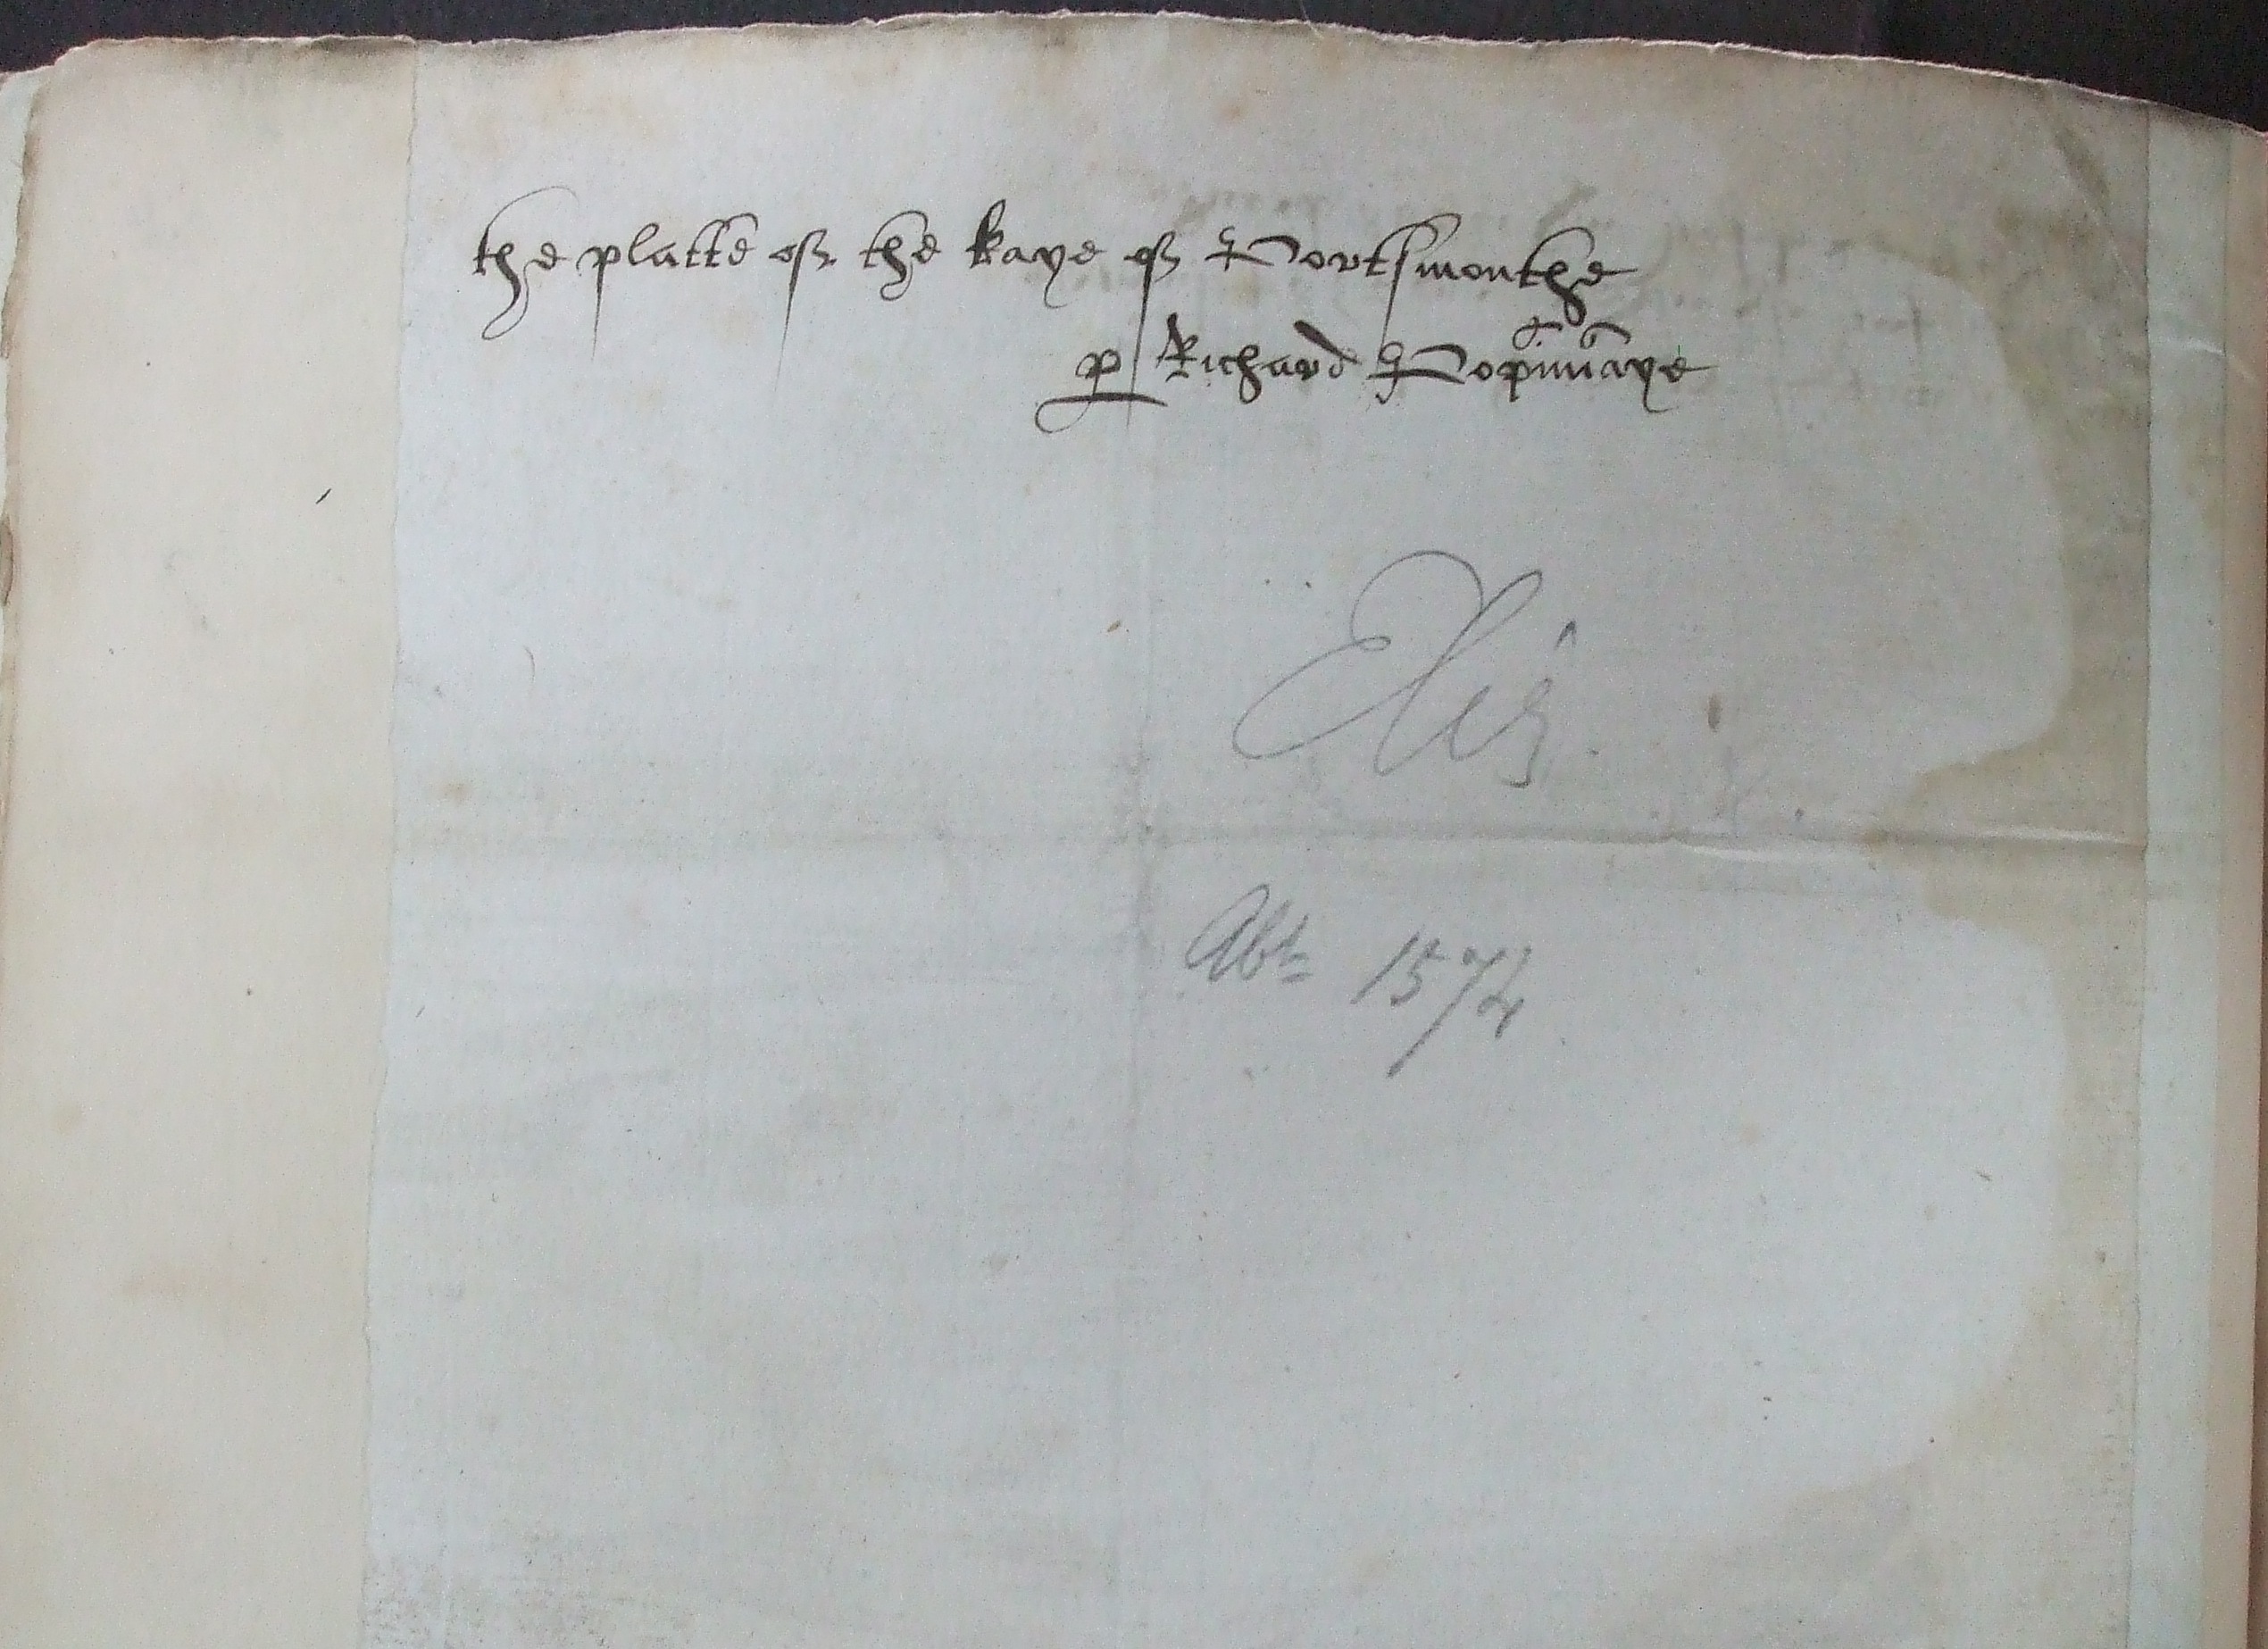 the platte of the kaye of Portsmouthe
p Richard Popinuaye
Eliz.
Abt 1574